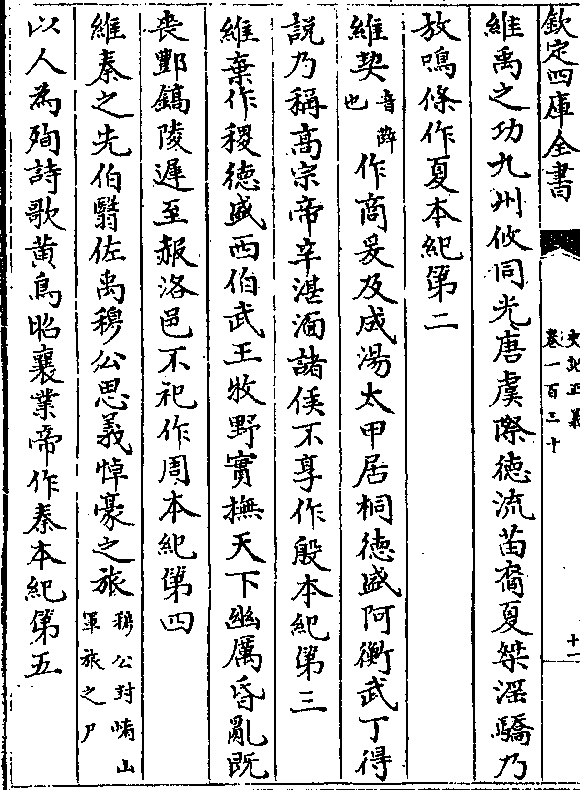 欽定四庫全書
史記正義
卷一百三十
十一
維禹之功九州攸同光唐虞際德流苗裔夏桀淫驕乃
放鳴條作夏本紀第二
維契音薛也作商爰及成湯太甲居桐德盛阿衡武丁得
說乃稱高宗帝辛湛湎諸侯不享作殷本紀第三
維棄作稷德盛西伯武王牧野實撫天下幽厲昏亂既
喪酆鎬陵遲至赧洛邑不祀作周本紀第四
維秦之先伯翳佐禹穆公思義悼豪之旅穆公封崤山軍旅之尸
以人為殉詩歌黄鳥昭襄業帝作秦本紀第五